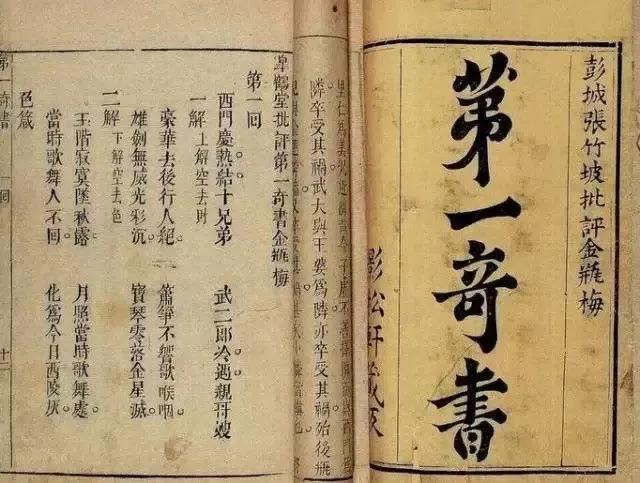 彭城張竹坡批評金瓶梅
第一奇書
影松軒藏板
隣卒受其禍武大與王婆為隣亦卒受其禍殆後瓶
皐鶴堂批評第一奇書金瓶梅
第一回
西門慶熱結十兄弟　武二郎冷遇親哥嫂
一解　上解空去財
豪華去後行人絕。　簫箏不響歌喉咽。
雄劍無威光彩沉。　寶琴零落金星滅。
二解　下解空去色
玉階寂寞墜秋露。　月照當時歌舞處。
當時歌舞人不回。　化為今日西陵灰。
色箴
第一奇書　回　十二